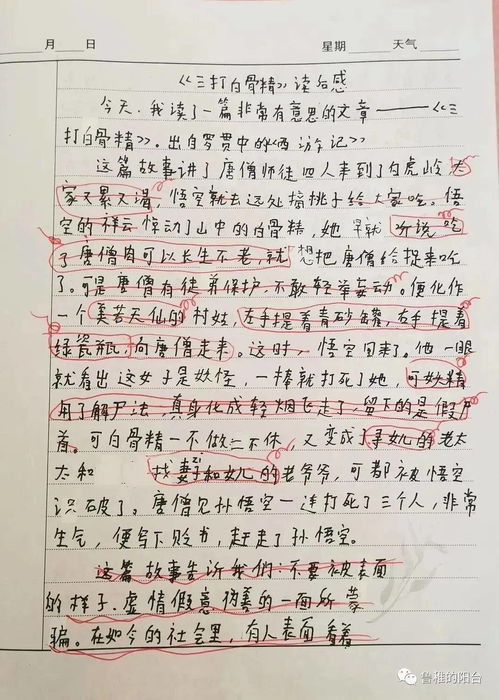 月 日 星期 天气
《三打白骨精》读后感
今天,我读了一篇非常有意思的文章——《三
打白骨精》。出自罗贯中的《西游记》
这篇故事讲了唐僧师徒四人来到了白虎岭,大
家又累又渴,悟空就去远处摘桃子给大家吃。悟
空的祥云惊动了山中的白骨精,她早就听说吃
了唐僧肉可以长生不老,就想把唐僧给捉来吃
了。可是唐僧有徒弟保护,不敢轻举妄动。便化作
一个美若天仙的村姑,左手提着青砂罐,右手提着
绿瓷瓶,向唐僧走来。这时,悟空回来了。他一眼
就看出这女子是妖怪,一棒就打死了她,可妖精
用了解尸法,真身化成轻烟飞走了,留下的是假尸
首。可白骨精一不做二不休,又变成了寻女儿的老太
太和 找妻子和女儿的老爷爷,可都被悟空
识破了。唐僧见孙悟空一连打死了三个人,非常
生气,便写下贬书,赶走了孙悟空。
这篇故事告诉我们:不要被表面
的样子、虚情假意,伪善的一面所蒙
骗。在如今的社会里,有人表面看着
鲁雅的阳台